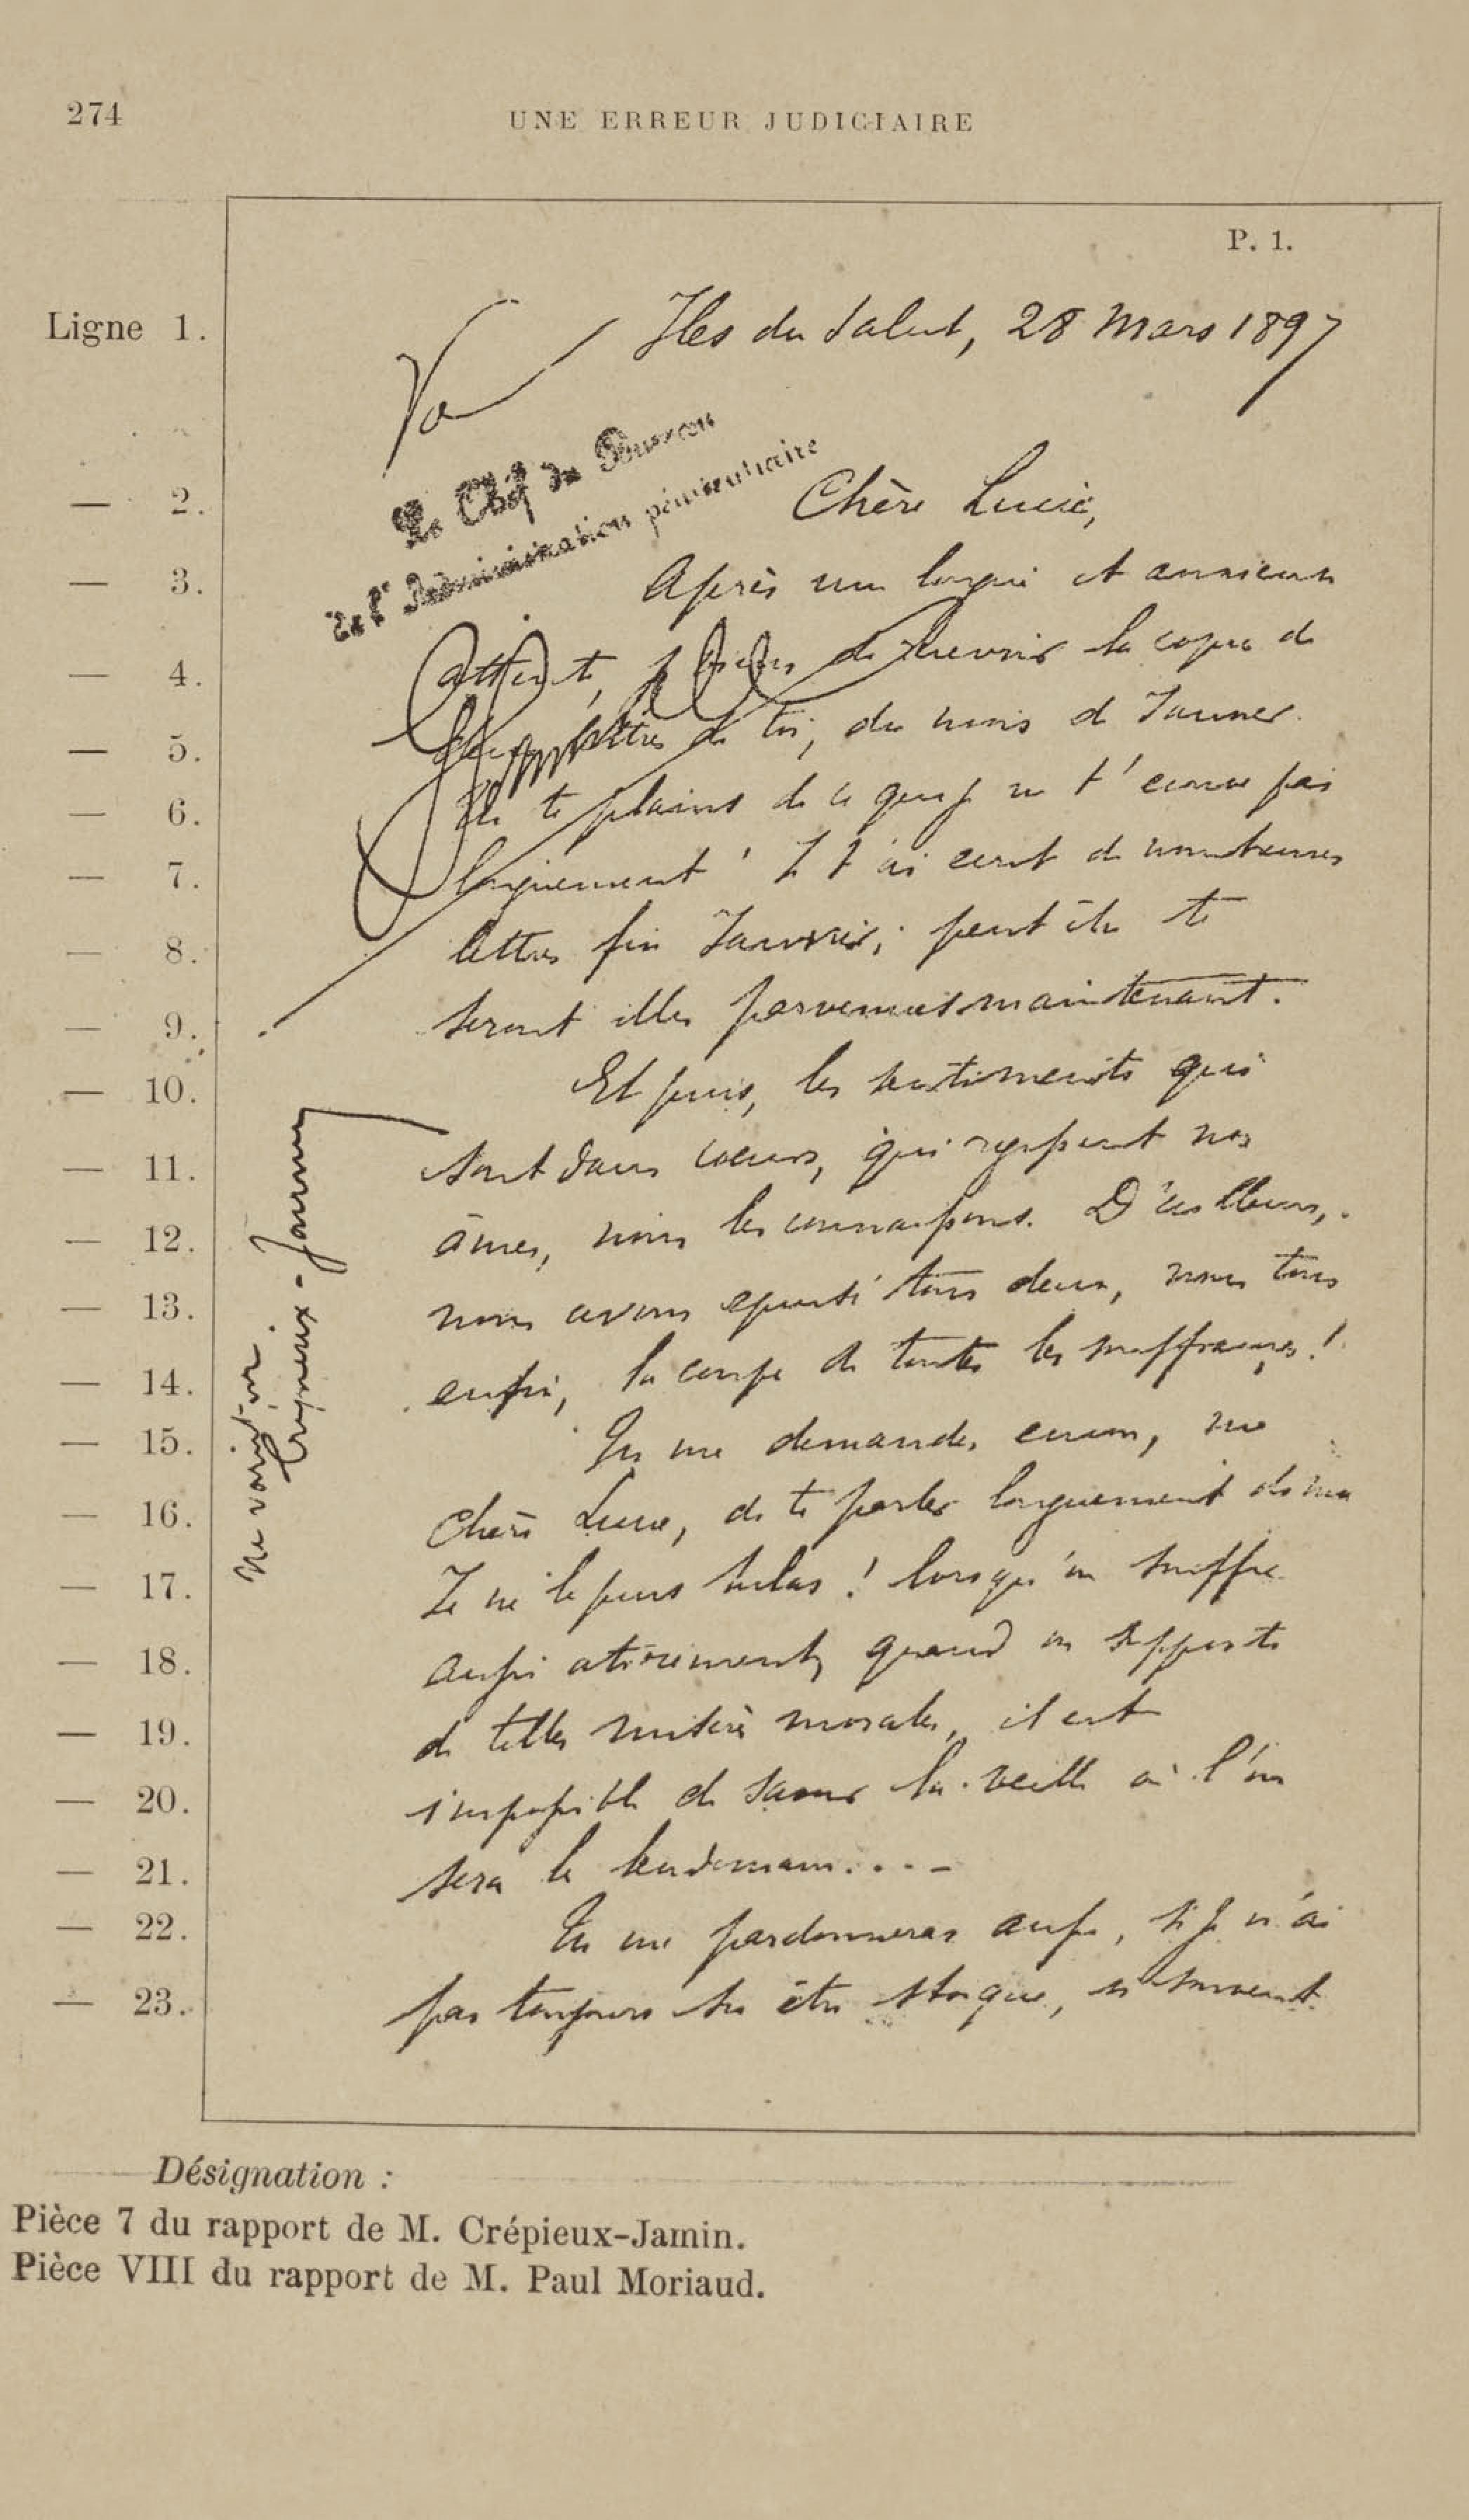 274
UNE ERREUR JUDICIAIRE
P. 1.
Ligne 1. Iles du Salut, 28 Mars 1897
Vu
Le Chef du Bureau
de l'Administration pénitentiaire
— 2. Chère Lucie,
— 3. Après une longue et anxieuse
— 4. attente, je viens de recevoir la copie de
— 5. deux lettres de toi, du mois de Janvier.
— 6. Tu te plains de ce que je ne t'écrive pas
— 7. longuement! Je t'ai écrit de nombreuses
— 8. lettres fin Janvier; peut être te
— 9. seront elles parvenues maintenant.
— 10. Et puis, les sentiments qui
— 11. sont dans coeurs, qui régissent nos
— 12. âmes, nous les connaissons. D'ailleurs,
— 13. nous avons épuisé tous deux, nous tous
— 14. enfin, la coupe de toutes les souffrances!
— 15. Tu me demandes encore, ma
— 16. chère Lucie, de te parler longuement de moi
— 17. Je ne le puis hélas! lorsqu'on souffre
— 18. aussi atrocement, quand on supporte
— 19. de telles misères morales, il est
— 20. impossible de savoir la veille où l'on
— 21. sera le lendemain....
— 22. Tu me pardonneras aussi, si je n'ai
— 23. pas toujours su être stoïque, si souvent
Ne varietur.
Crépieux-Jamin
Désignation :
Pièce 7 du rapport de M. Crépieux-Jamin.
Pièce VIII du rapport de M. Paul Moriaud.